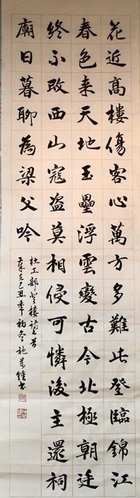 花近高樓傷客心萬方多難此登臨錦江
春色来天地玉壘浮雲變古今北極朝廷
終不改西山寇盜莫相侵可憐後主還祠
廟日暮聊為梁父吟
杜工部登樓詩一首
歲在己丑年初冬施